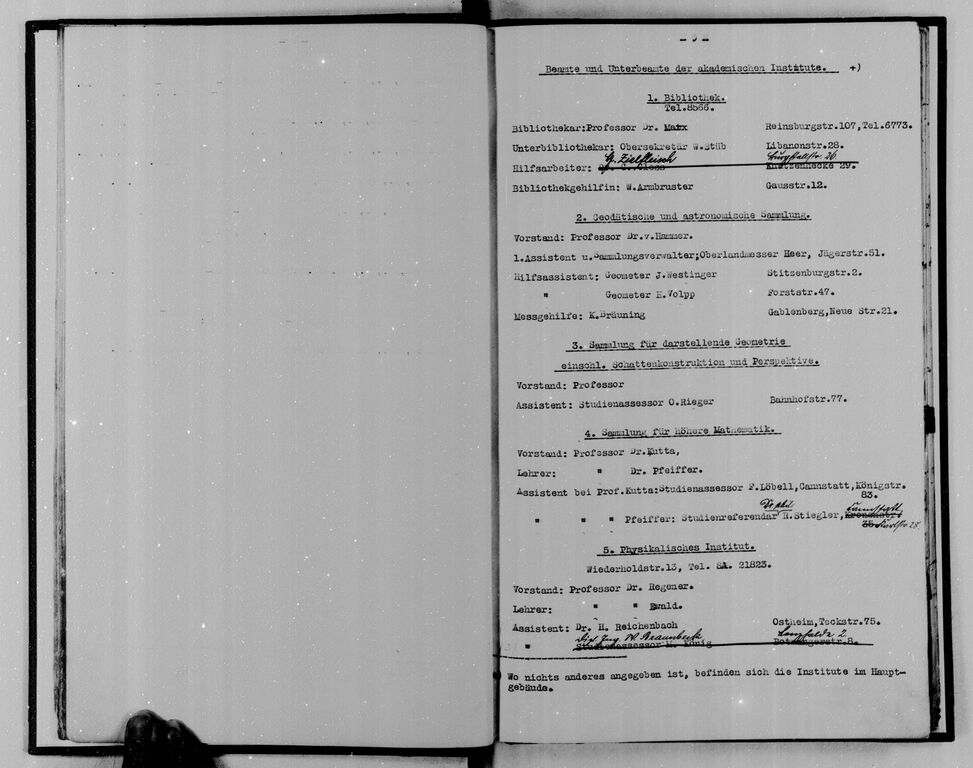 Beamte und Unterbeamte der akademischen Institute. +)
1. Bibliothek.
Tel.8566.
Bibliothekar:Professor Dr. Marx Reinsburgstr.107,Tel.6773.
Unterbibliothekar: Obersekretär W.Stüb Libanonstr.28.
G. Zielfleisch Burgstallstr. 26
Hilfsarbeiter: 29.
Bibliothekgehilfin: W.Armbruster Gausstr.12.
2. Geodätische und astronomische Sammlung.
Vorstand: Professor Dr.v.Hammer.
1.Assistent u.Sammlungsverwalter;Oberlandmesser Heer, Jägerstr.51.
Hilfsassistent: Geometer J.Westinger Stitzenburgstr.2.
" Geometer H.Volpp Forststr.47.
Messgehilfe: K.Bräuning Gablenberg,Neue Str.21.
3. Sammlung für darstellende Geometrie
einschl. Schattenkonstruktion und Perspektive.
Vorstand: Professor
Assistent: Studienassessor O.Rieger Bahnhofstr.77.
4. Sammlung für höhere Mathematik.
Vorstand: Professor Dr.Kutta,
Lehrer: " Dr. Pfeiffer.
Assistent bei Prof.Kutta:Studienassessor F.Löbell,Cannstatt,Königstr.
83.
Dr phil Cannstatt
" " " Pfeiffer: Studienreferendar R.Stiegler,
35 Karlstr 28
5. Physikalisches Institut.
Wiederholdstr.13, Tel. SA. 21823.
Vorstand: Professor Dr. Regener.
Lehrer: " " Ewald.
Assistent: Dr. H. Reichenbach Ostheim,Teckstr.75.
Dipl. Ing. W. Braunbeck 2
" Studienassessor M. König Botnangerstr.8.
Wo nichts anderes angegeben ist, befinden sich die Institute im Haupt-
gebäude.